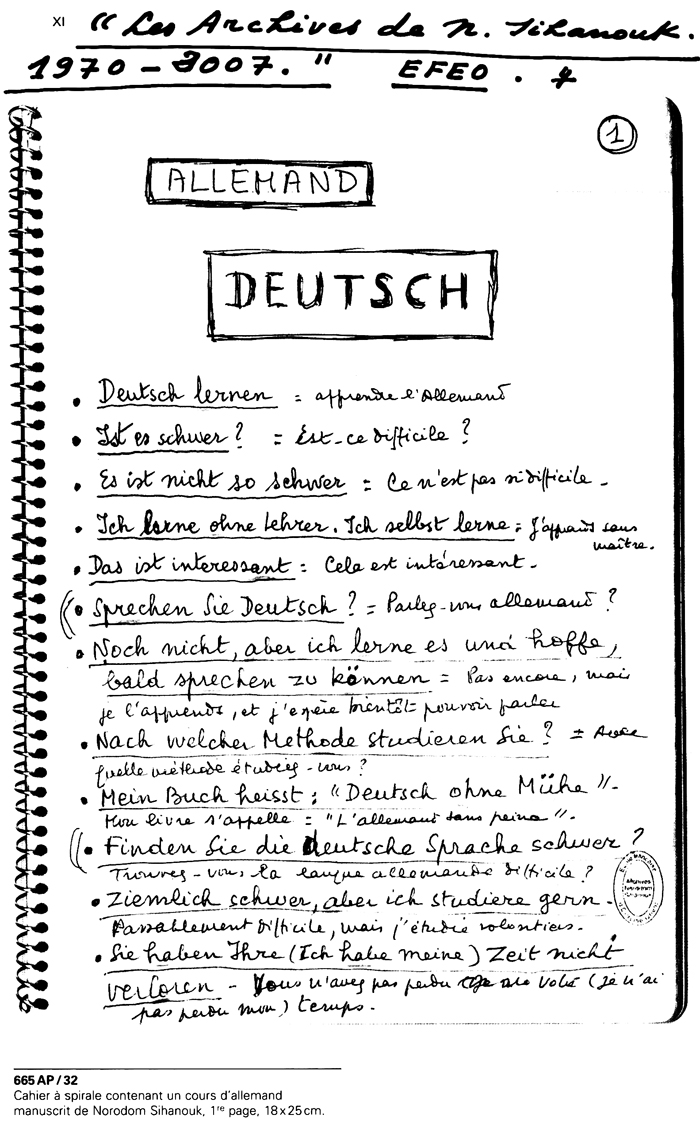 XI "Les Archives de N. Sihanouk.
1970 – 2007." EFEO. 4
1
ALLEMAND
DEUTSCH
• Deutsch lernen = apprendre l'Allemand
• Ist es schwer ? = Est-ce difficile ?
• Es ist nicht so schwer = Ce n'est pas si difficile -
• Ich lerne ohne Lehrer. Ich selbst lerne = J'apprends sans
maître.
• Das ist interessant = Cela est intéressant -
• Sprechen Sie Deutsch ? = Parlez-vous allemand ?
• Noch nicht, aber ich lerne es und hoffe,
bald sprechen zu können = Pas encore, mais
je l'apprends, et j'espère bientôt pouvoir parler
• Nach welcher Methode studieren Sie ? = Avec
quelle méthode étudiez-vous ?
• Mein Buch heisst : "Deutsch ohne Mühe" -
Mon livre s'appelle = "L'allemant sans peine" -
• Finden Sie die deutsche Sprache schwer ?
Trouvez-vous la langue allemande difficile ?
• Ziemlich schwer, aber ich studiere gern.
Passablement difficile, mais j'étudie volontiers.
• Sie haben Ihre (Ich habe meine) Zeit nicht
verloren - Vous n'avez pas perdu votre (je n'ai
pas perdu mon) temps.
665 AP / 32
Cahier à spirale contenant un cours d'allemand
manuscrit de Norodom Sihanouk, 1re page, 18 x 25 cm.